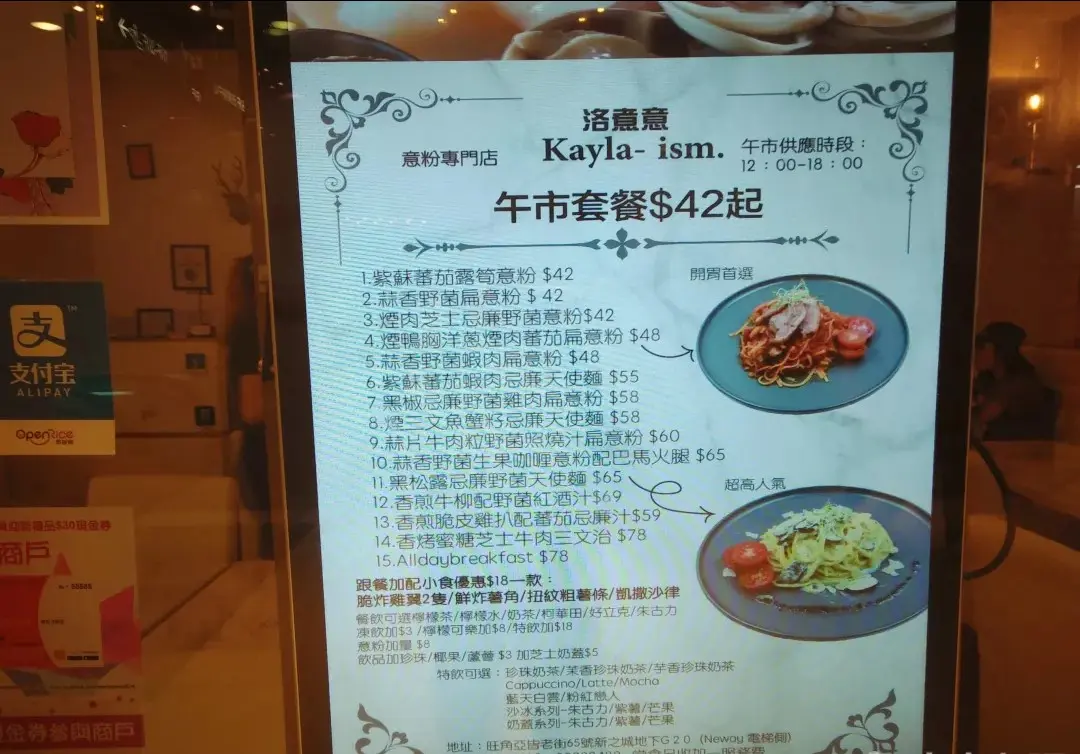 洛煮意
意粉專門店
Kayla- ism.
午市供應時段：
12：00-18：00
午市套餐$42起
1.紫蘇蕃茄露筍意粉 $42
2.蒜香野菌扁意粉 $ 42
3.煙肉芝士忌廉野菌意粉$42
4.煙鴨胸洋蔥煙肉蕃茄扁意粉 $48
5.蒜香野菌蝦肉扁意粉 $48
6.紫蘇蕃茄蝦肉忌廉天使麵 $55
7.黑椒忌廉野菌雞肉扁意粉 $58
8.煙三文魚蟹籽忌廉天使麵 $58
9.蒜片牛肉粒野菌照燒汁扁意粉 $60
10.蒜香野菌生果咖喱意粉配巴馬火腿 $65
11.黑松露忌廉野菌天使麵 $65
12.香煎牛柳配野菌紅酒汁$69
13.香煎脆皮雞扒配蕃茄忌廉汁$59
14.香烤蜜糖芝士牛肉三文治 $78
15.Alldaybreakfast $78
開胃首選
超高人氣
跟餐加配小食優惠$18一款：
脆炸雞翼2隻/鮮炸薯角/扭紋粗薯條/凱撒沙律
餐飲可選檸檬茶/檸檬水/奶茶/柯華田/好立克/朱古力
凍飲加$3 /檸檬可樂加$8/特飲加$18
意粉加量 $8
飲品加珍珠/椰果/蘆薈 $3 加芝士奶蓋$5
特飲可選：珍珠奶茶/茉香珍珠奶茶/芋香珍珠奶茶
Cappuccino/Latte/Mocha
藍天白雲/粉紅戀人
沙冰系列-朱古力/紫薯/芒果
奶蓋系列-朱古力/紫薯/芒果
地址：旺角亞皆老街65號新之城地下G20（Neway 電梯側）
支
支付宝
ALIPAY
OpenRice
$30現金券
商戶
金券參與商戶